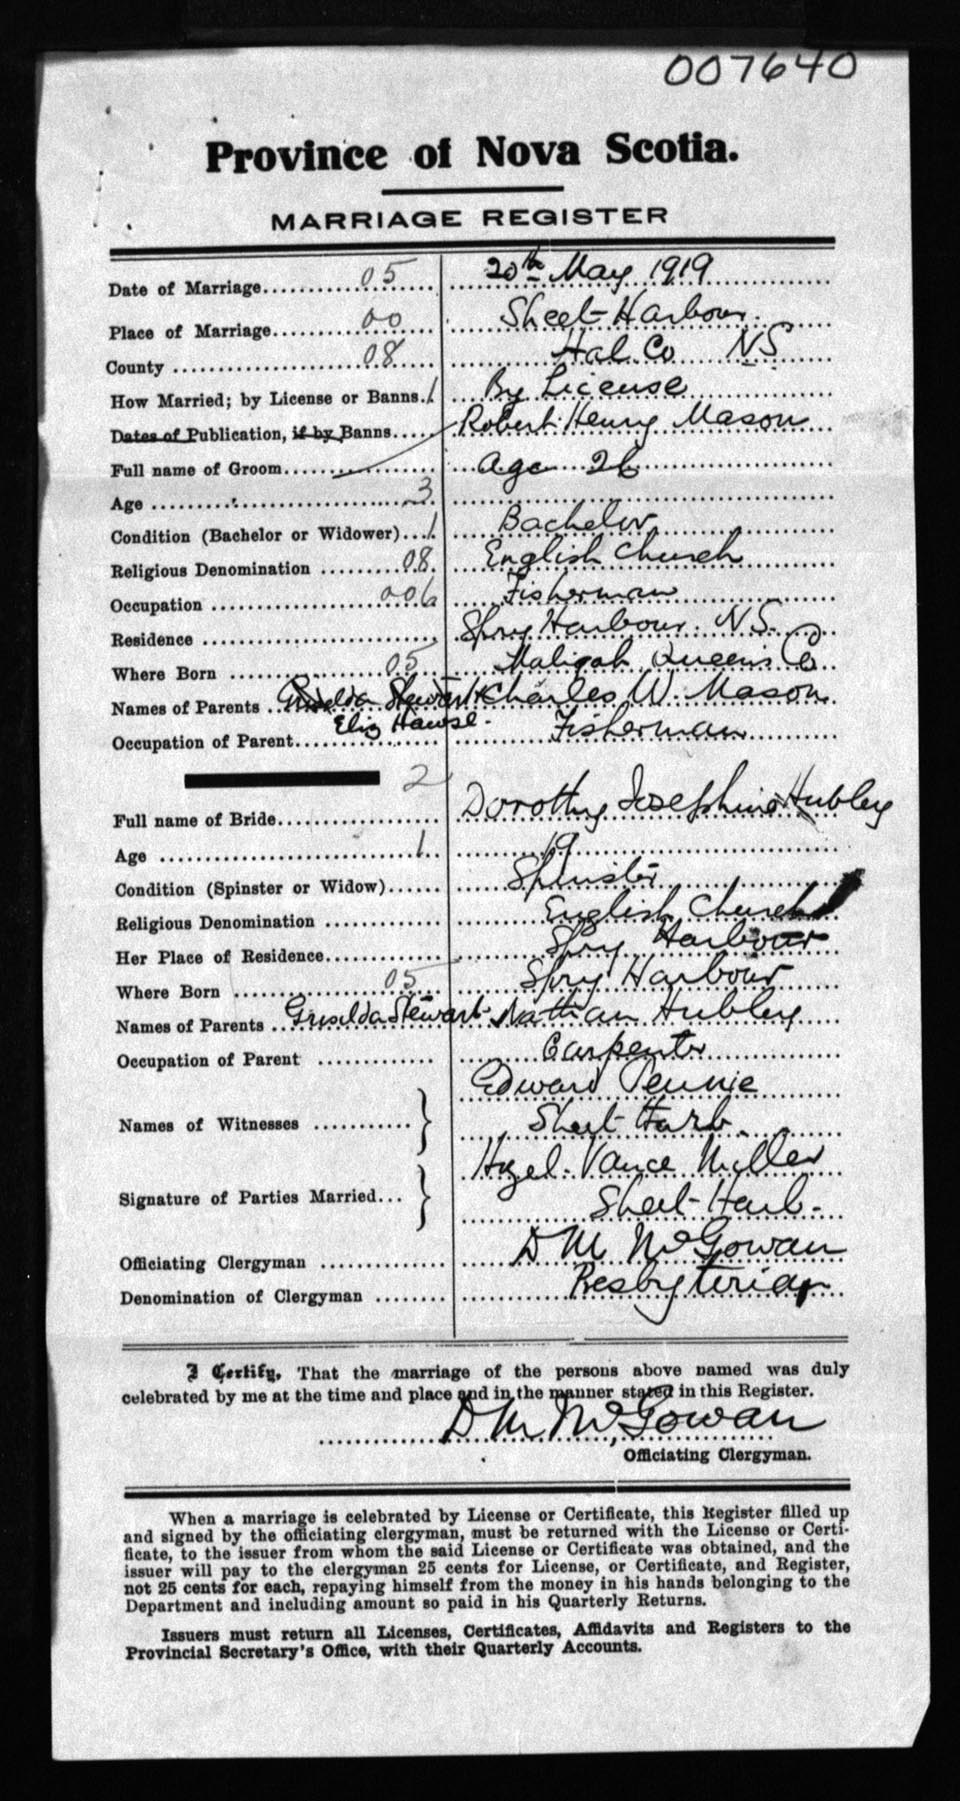 007640
Province of Nova Scotia.
MARRIAGE REGISTER
Date of Marriage 05 20th May 1919
Place of Marriage 00 Sheet Harbour.
County 08 Hal. Co NS
How Married; by License or Banns. 1 By License
Dates of Publication, if by Banns Robert Henry Mason
Full name of Groom Age 26
Age 3
Condition (Bachelor or Widower) 1 Bachelor
Religious Denomination 08 English Church
Occupation 006 Fisherman
Residence Spry Harbour. N.S.
Where Born 05 Queens Co
Names of Parents Charles W. Mason
Eliz Hawse.
Occupation of Parent Fisherman
2
Full name of Bride Dorothy Josephine Hubley
Age 1 19
Condition (Spinster or Widow) Spinster
Religious Denomination English Church
Her Place of Residence Spry Harbour
Where Born 05 Spry Harbour
Names of Parents Griselda Stewart Nathan Hubley
Occupation of Parent Carpenter
Edward
Names of Witnesses Sheet Harb.
Hazel Vance Miller
Signature of Parties Married Sheet Harb.
Officiating Clergyman D M McGowan
Denomination of Clergyman Presbyterian
I Certify, That the marriage of the persons above named was duly
celebrated by me at the time and place and in the manner stated in this Register.
D M McGowan
Officiating Clergyman.
When a marriage is celebrated by License or Certificate, this Register filled up
and signed by the officiating clergyman, must be returned with the License or Certi-
ficate, to the issuer from whom the said License or Certificate was obtained, and the
issuer will pay to the clergyman 25 cents for License, or Certificate, and Register,
not 25 cents for each, repaying himself from the money in his hands belonging to the
Department and including amount so paid in his Quarterly Returns.
Issuers must return all Licenses, Certificates, Affidavits and Registers to the
Provincial Secretary's Office, with their Quarterly Accounts.